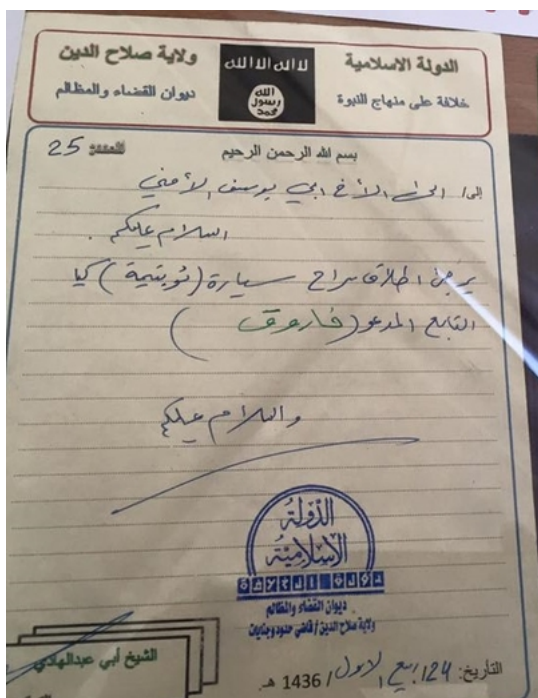 الدولة الاسلامية
خلافة على منهاج النبوة
لا اله الا الله
الله
رسول
محمد
ولاية صلاح الدين
ديوان القضاء والمظالم
العدد 25
بسم الله الرحمن الرحيم
إلى/ الأخ ابي يوسف الأمني
السلام عليكم
يرجى اطلاق سراح سيارة (كيا
التابع المدعو (فاروق)
والسلام عليكم
الدولة
الاسلامية
ديوان القضاء والمظالم
ولاية صلاح الدين / قاضي حدود وجنايات
الشيخ أبي عبدالهادي
التأريخ: 24/ربيع الاول/ 1436 هـ